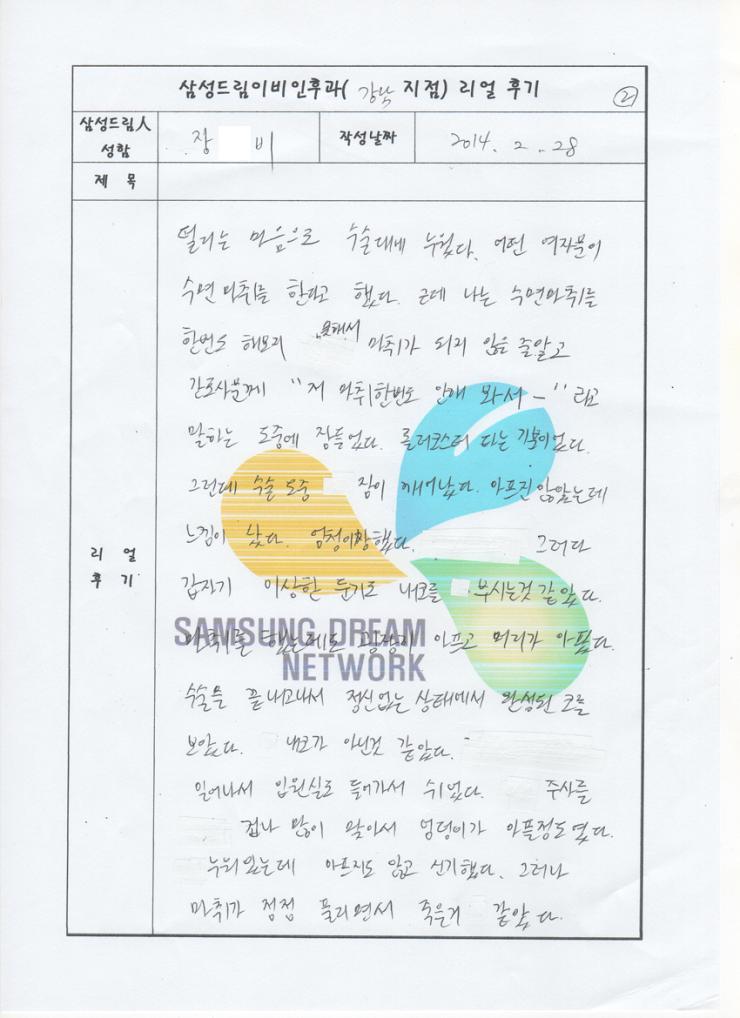 삼성드림이비인후과( 강남 지점) 리얼 후기
②
삼성드림人 성함
장 비
작성날짜
2014. 2. 28
제 목
리 얼 후 기
떨리는 마음으로 수술대에 누웠다. 어떤 여자분이
수면마취를 한다고 했다. 근데 나는 수면마취를
한번도 해보지 못해서 마취가 되지 않을 줄알고
간호사분께 "저 마취한번도 안해 봐서 -" 라고
말하는 도중에 잠들었다. 롤러코스터 타는 기분이었다.
그런데 수술 도중 잠이 깨어났다. 아프진 않았는데
느낌이 났다. 엄청이상했다. 그러다
갑자기 이상한 둔기로 내코를 부시는것 같았다.
마취를 했는데도 굉장히 아프고 머리가 아팠다.
SAMSUNG DREAM
NETWORK
수술을 끝내고나서 정신없는 상태에서 완성된 코를
보았다. 내코가 아닌것 같았다.
일어나서 입원실로 들어가서 쉬었다. 주사를
겁나 많이 맞아서 엉덩이가 아플정도였다.
누워있는데 아프지도 않고 신기했다. 그러나
마취가 점점 풀리면서 죽을거 같았다.